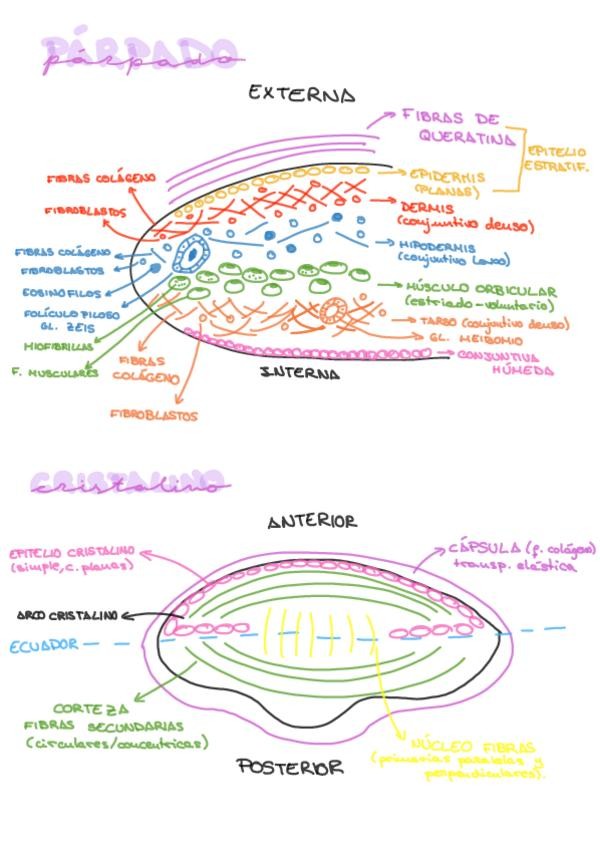 PÁRPADO
párpado
EXTERNA
FIBRAS DE
QUERATINA
EPITELIO
ESTRATIF.
EPIDERMIS
(PLANAS)
FIBRAS COLÁGENO
FIBROBLASTOS
DERMIS
(conjuntivo denso)
FIBRAS COLÁGENO
FIBROBLASTOS
EOSINOFILOS
FOLÍCULO PILOSO
GL. ZEIS
HIPODERMIS
(conjuntivo laxo)
MIOFIBRILLAS
F. MUSCULARES
MÚSCULO ORBICULAR
(estriado-voluntario)
TARSO (conjuntivo denso)
GL. MEIBOMIO
FIBRAS
COLÁGENO
FIBROBLASTOS
CONJUNTIVA
HÚMEDA
INTERNA
CRISTALINO
cristalino
ANTERIOR
EPITELIO CRISTALINO
(simple, c. planas)
CÁPSULA (f. colágeno)
transp. elástica
ARCO CRISTALINO
ECUADOR
CORTEZA
FIBRAS SECUNDARIAS
(circulares/concentricas)
NÚCLEO FIBRAS
(primarias paralelas y
perpendiculares).
POSTERIOR